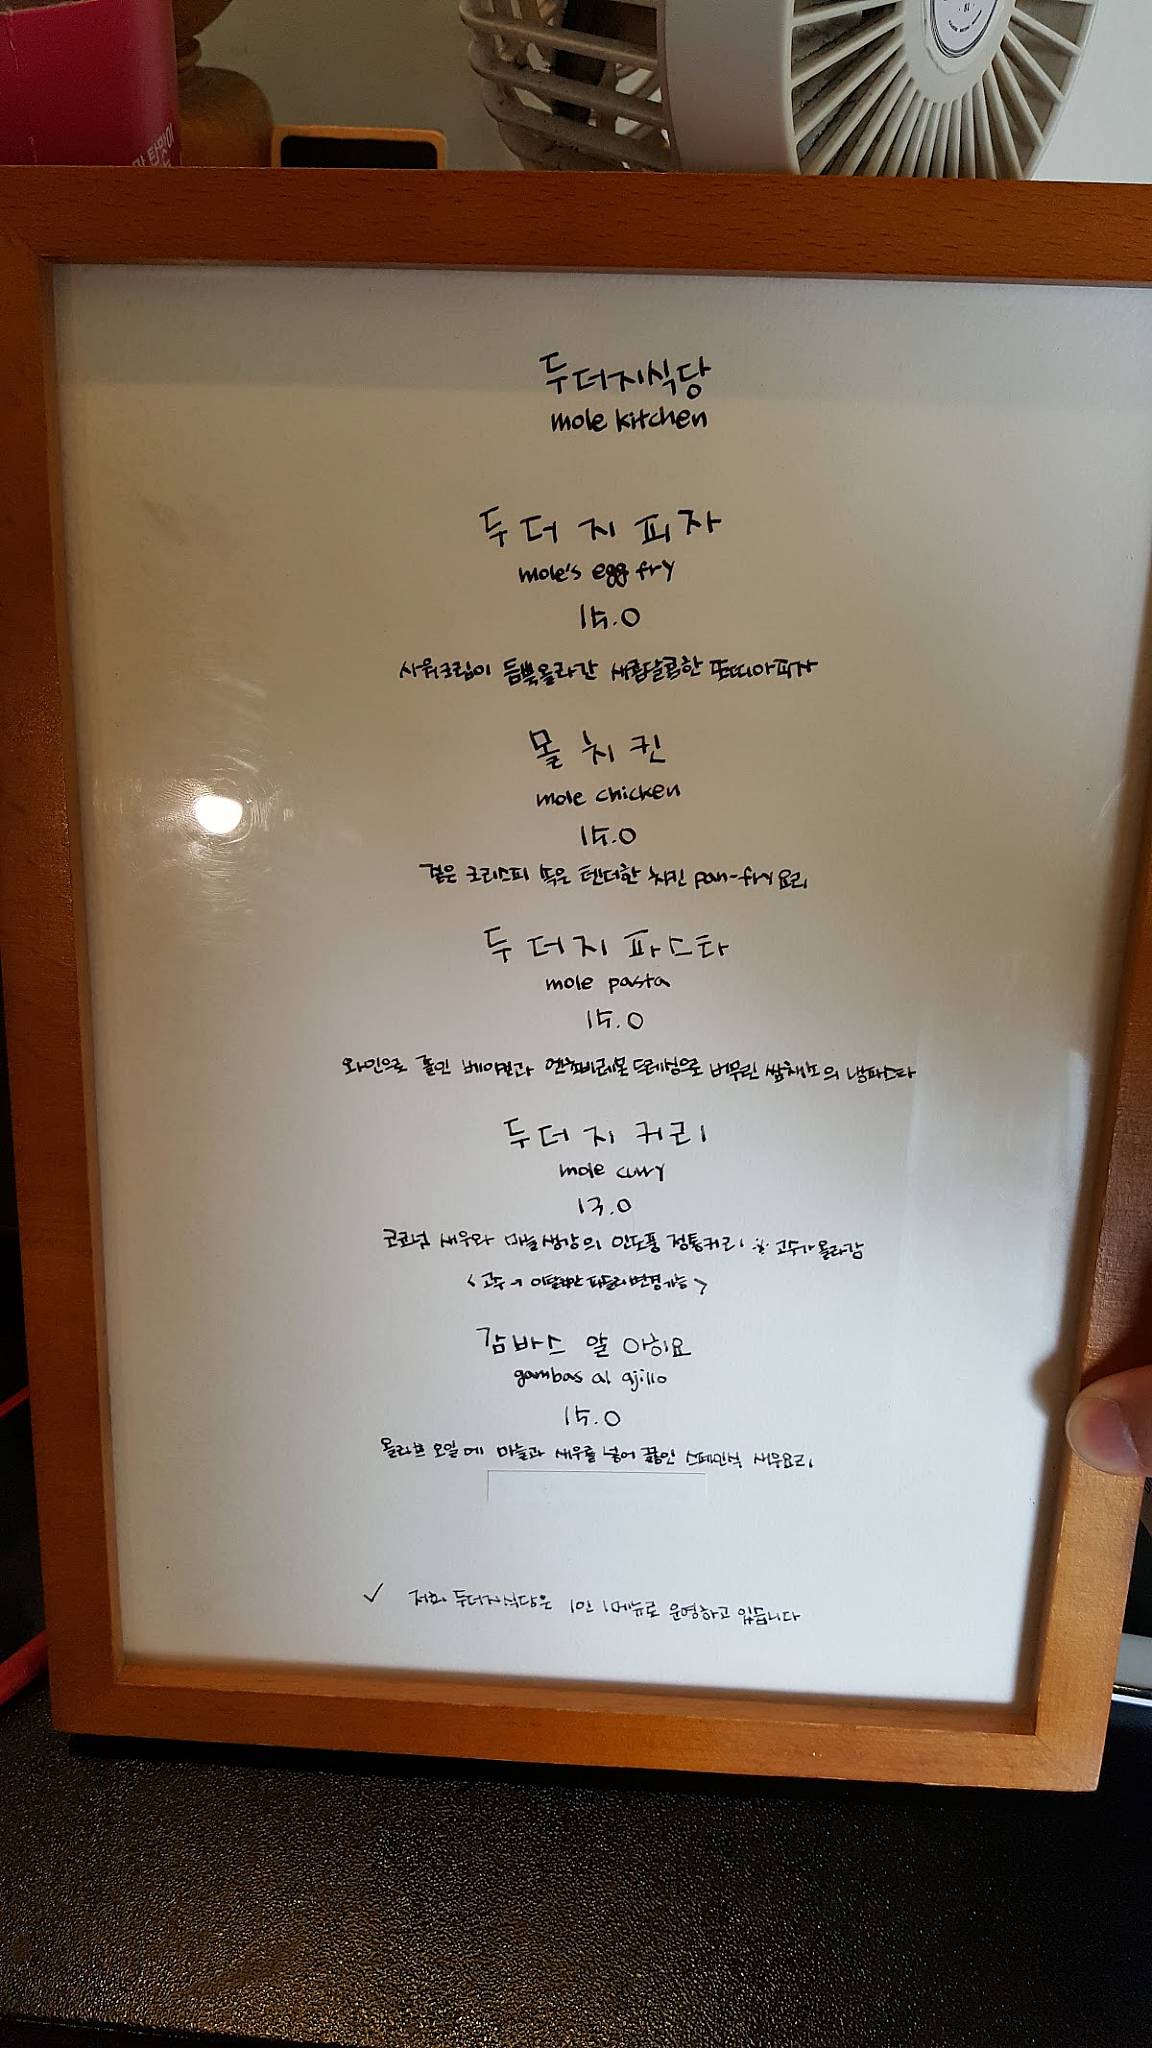 맛있
두더지식당
mole kitchen
두더지피자
mole's egg fry
15.0
사워크림이 듬뿍올라간 새콤달콤한 또띠아피자
몰치킨
mole chicken
15.0
겉은 크리스피 속은 텐더한 치킨 pan-fry 요리
두더지 파스타
mole pasta
15.0
와인으로 졸인 베이컨과 엔초비레몬드레싱으로 버무린 쌈채소의 냉파스타
두더지 커리
mole curry
13.0
코코넛 새우와 마늘생강의 인도풍 정통커리 ※ 고수가 올라감
<고수 → 이탈리안 파슬리변경가능>
감바스 알 아히요
gambas al ajillo
15.0
올리브 오일에 마늘과 새우를 넣어 끓인 스페인식 새우요리
✓ 저희 두더지식당은 1인 1메뉴로 운영하고 있습니다